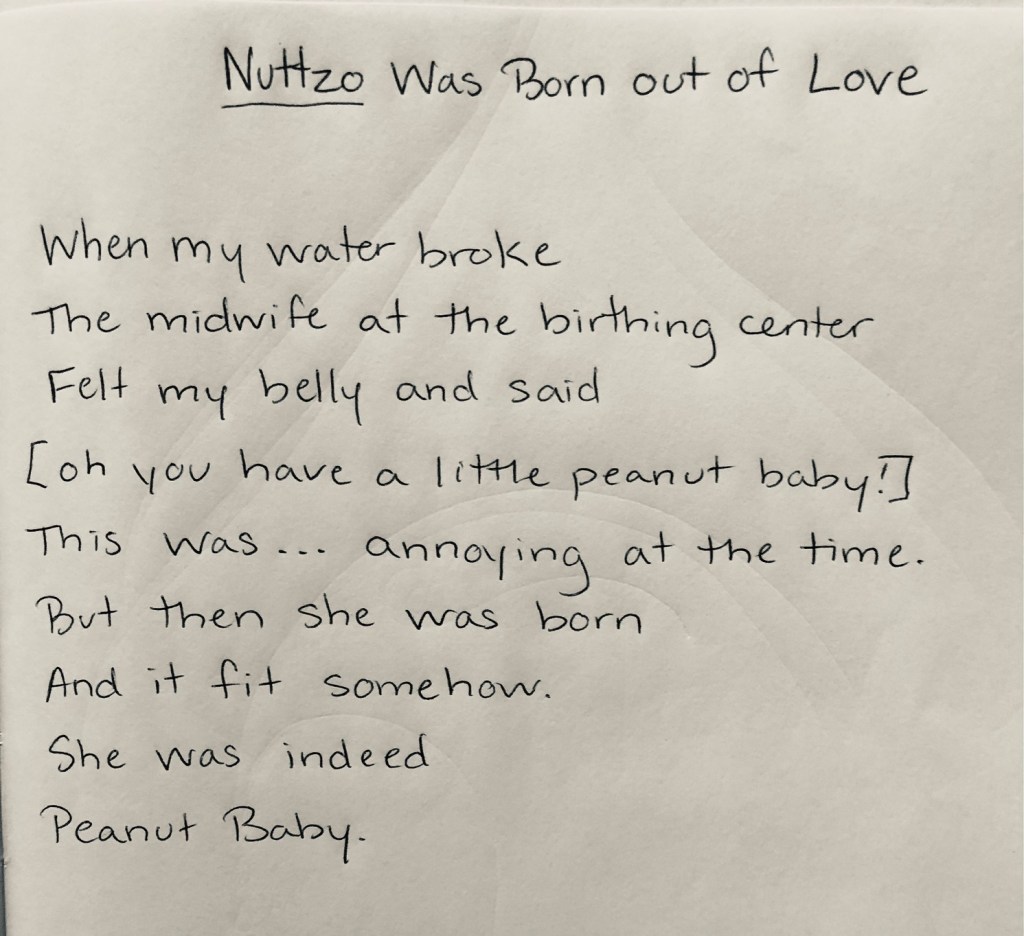 Nuttzo Was Born out of Love
When my water broke
The midwife at the birthing center
Felt my belly and said
[oh you have a little peanut baby!]
This was... annoying at the time.
But then she was born
And it fit somehow.
She was indeed
Peanut Baby.